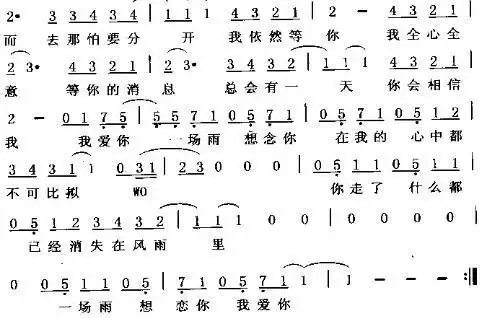 2· 3 3 4 3 4 | 1 1 1 4 3 2 1 | 2 - 4 3 2 1 |
而 去那怕要分 开 我依然等 你 我全心全
2 3· 4 3 2 1 | 2 3· 3 4 3 2 | 1 1 1 4 3 2 1 |
意 等你的消 息 总会有一 天 你会相信
2 - 0 1 7 5 | 5 5 7 1 0 5 7 1 | 0 5 7 1 0 5 1 2 |
我 我爱你 一场雨 想念你 在我的 心中都
3 4 3 1 1 0 3 1 | 2 3 0 0 0 | 0 5 1 1 0 5 1 1 |
不可比拟 WO 你走了 什么都
0 5 1 2 3 4 3 2 | 1 1 1 0 0 0 | 0 0 0 0 |
已经消失在风雨 里
0 0 5 1 1 0 5 | 5 7 1 0 5 7 1 | 1 - - - :||
一场雨 想 恋你 我爱你